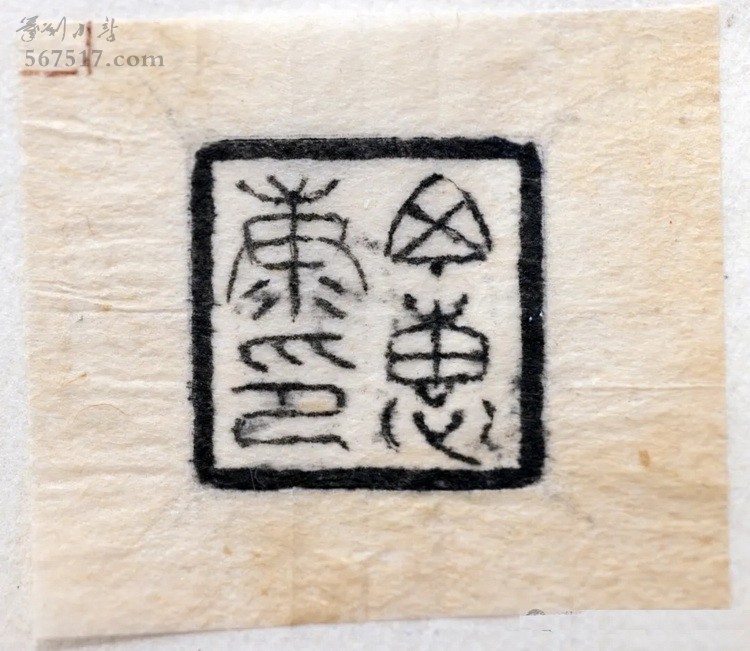 篆刻小站
567517.com
惠
康印